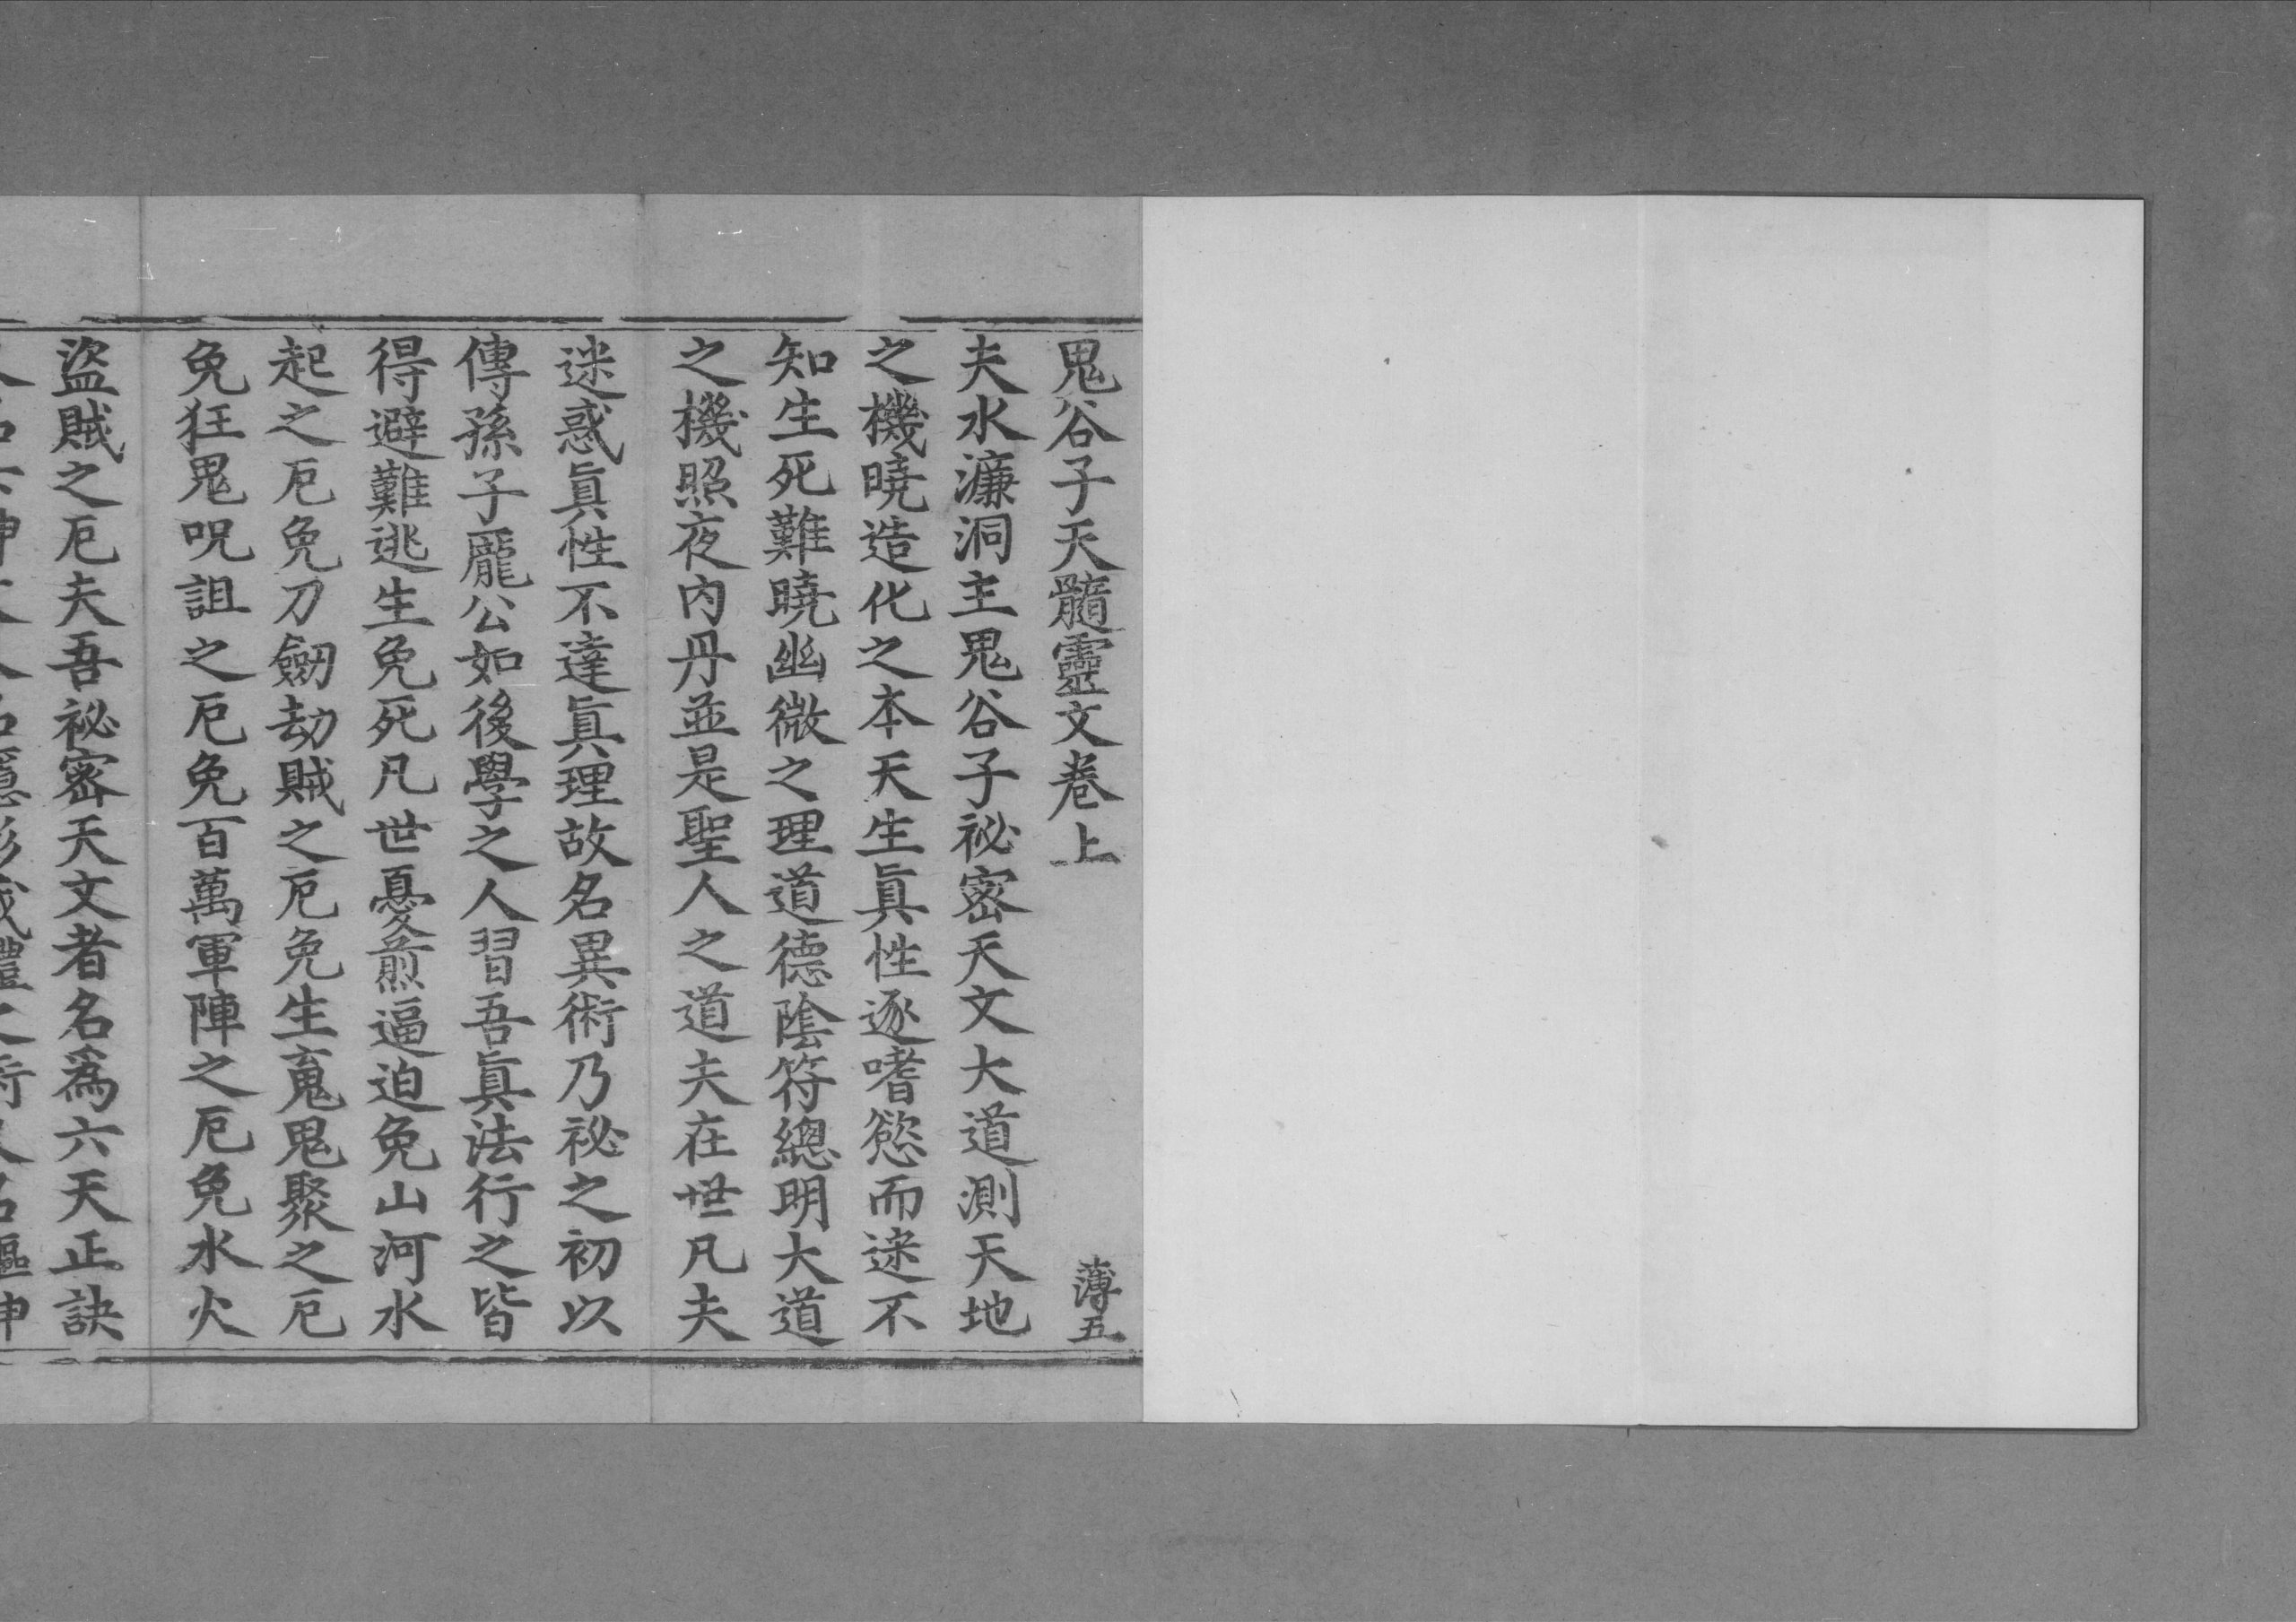 鬼谷子天髓靈文卷上 薄五
夫水濂洞主鬼谷子祕密天文大道測天地
之機曉造化之本天生眞性逐嗜慾而迷不
知生死難曉幽微之理道德陰符總明大道
之機照夜內丹並是聖人之道夫在世凡夫
迷惑眞性不達眞理故名異術乃祕之初以
傳孫子龐公如後學之人習吾眞法行之皆
得避難逃生免死凡世憂煎逼迫免山河水
起之厄免刀劒劫賊之厄免生寃鬼聚之厄
免狂鬼呪詛之厄免百萬軍陣之厄免水火
盜賊之厄夫吾祕密天文者名爲六天正訣